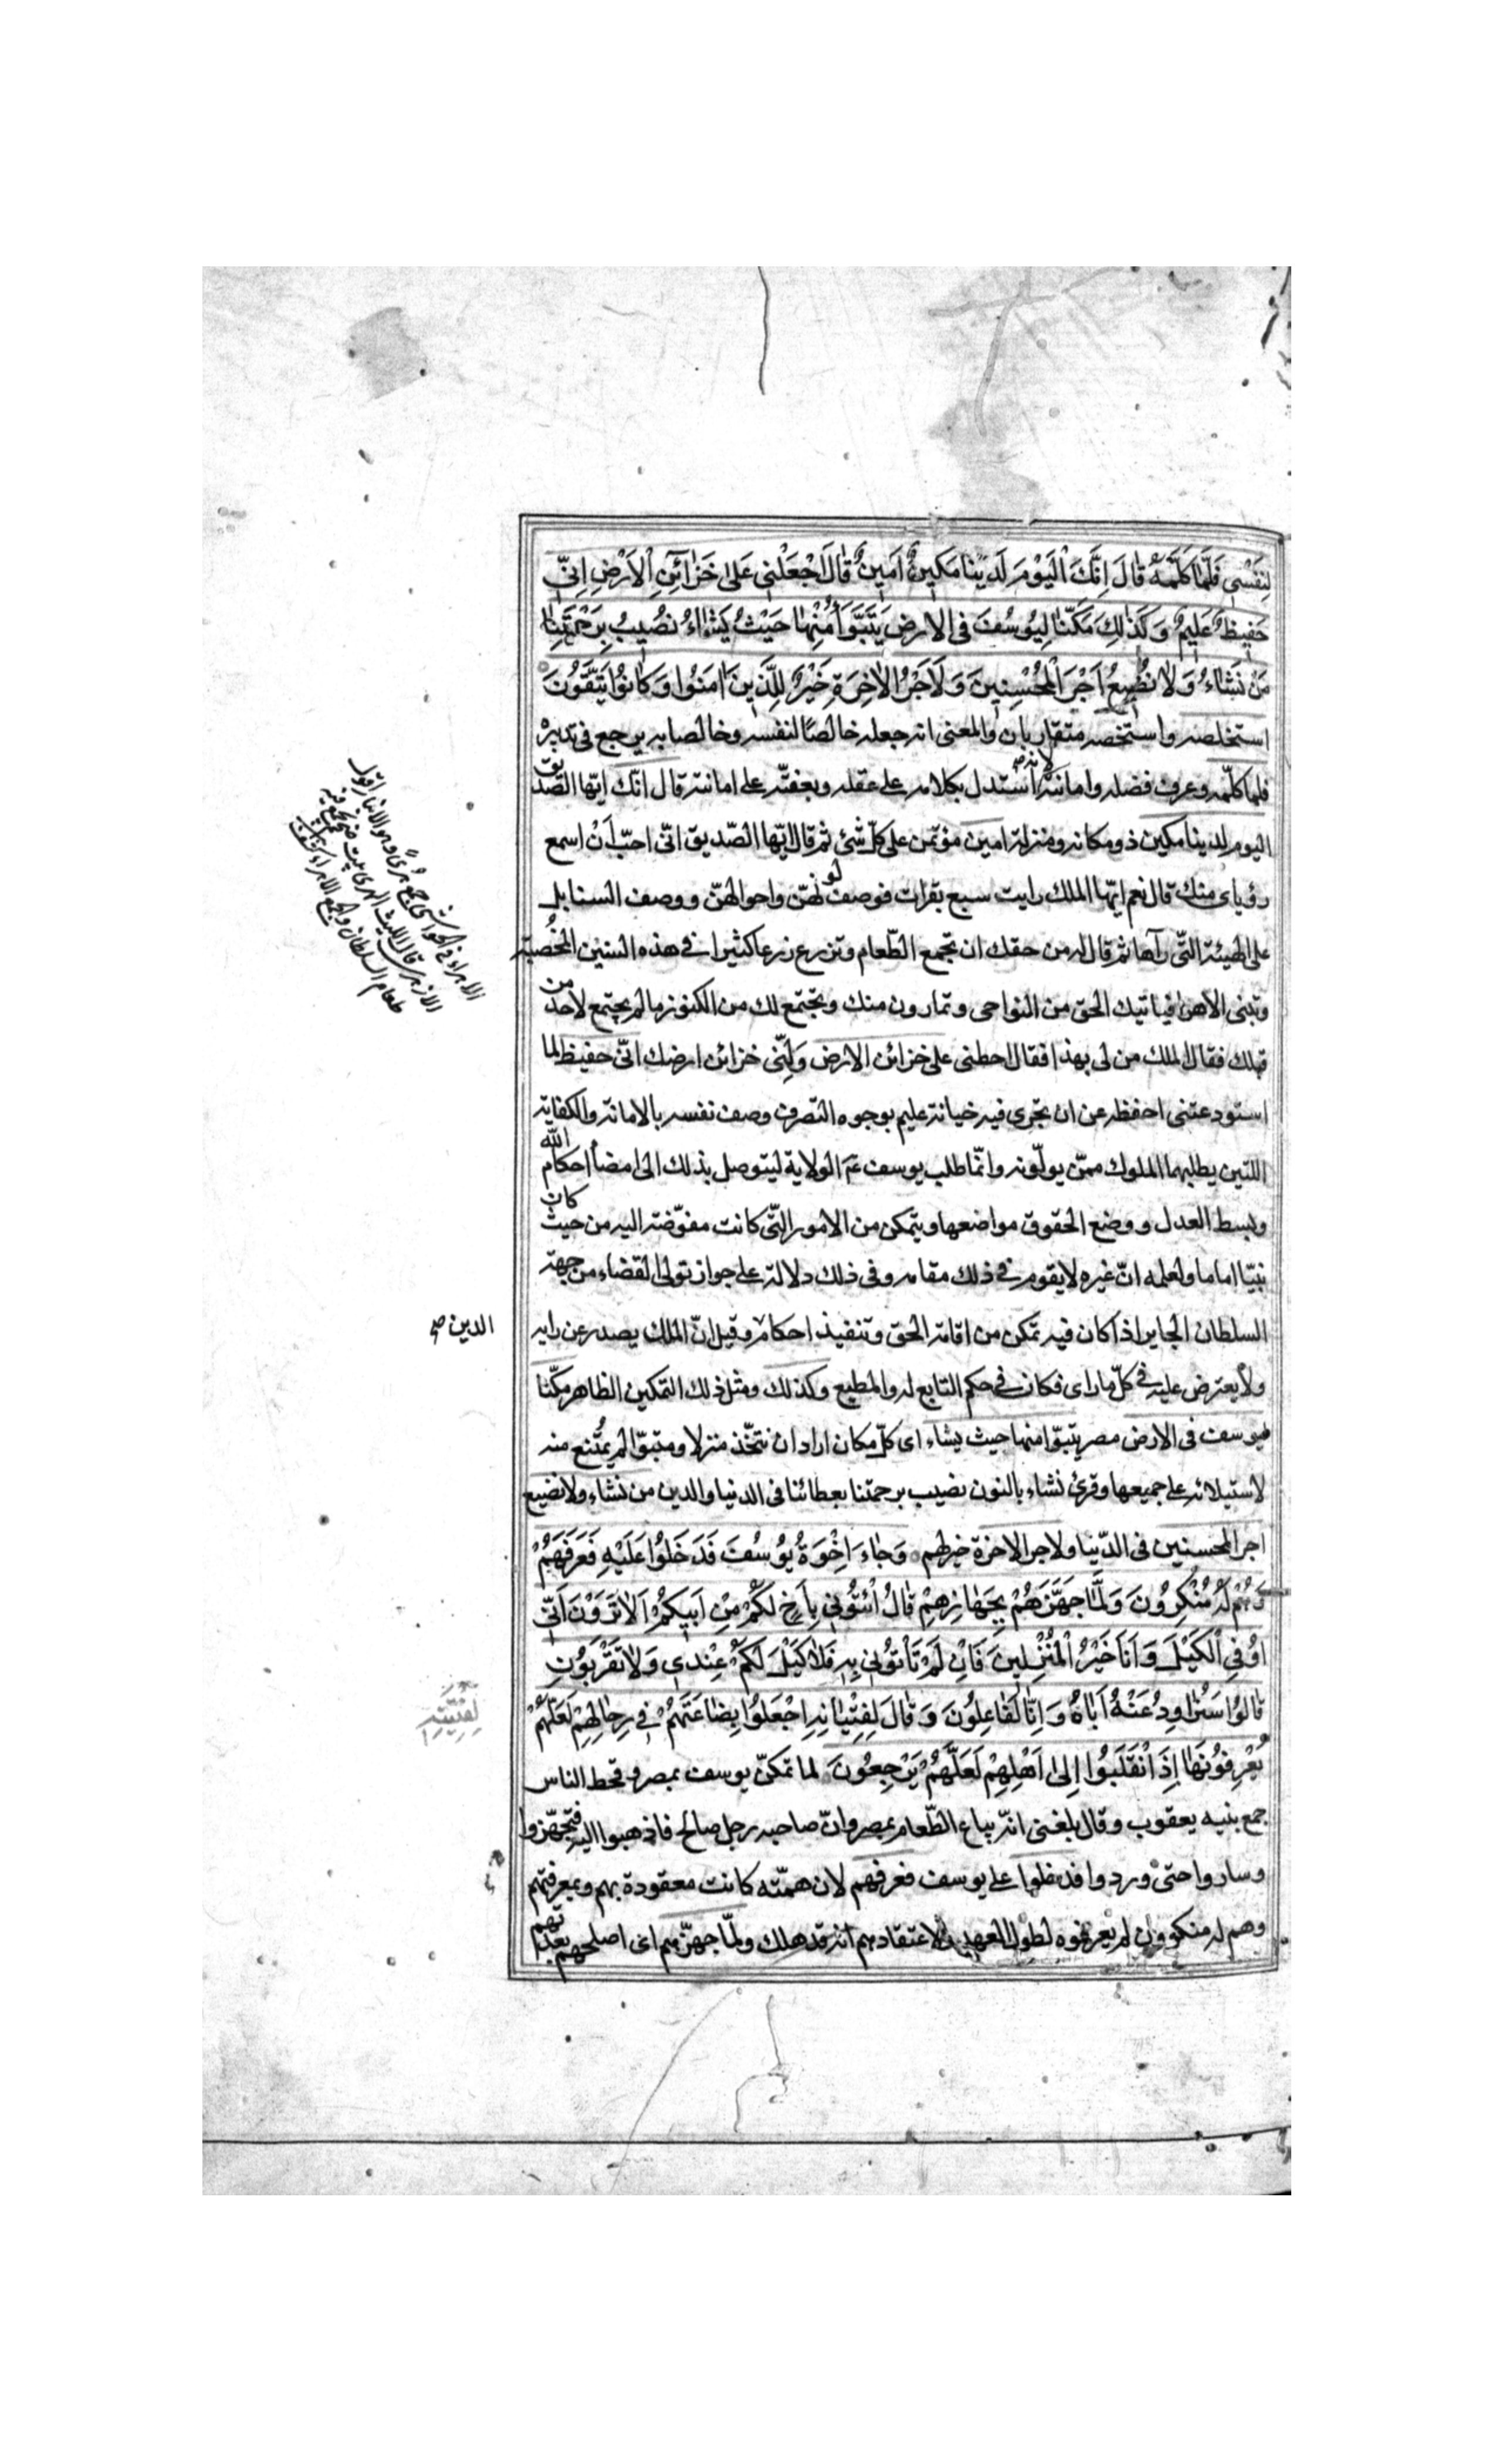 لِنَفْسِي فَلَمَّا كَلَّمَهُ قَالَ اِنَّكَ الْيَوْمَ لَدَيْنَا مَكِينٌ اَمِينٌ قَالَ اجْعَلْنِي عَلٰى خَزَائِنِ الْاَرْضِ اِنِّي
حَفِيظٌ عَلِيمٌ وَكَذٰلِكَ مَكَّنَّا لِيُوسُفَ فِى الْاَرْضِ يَتَبَوَّأُ مِنْهَا حَيْثُ يَشَاءُ نُصِيبُ بِرَحْمَتِنَا
مَنْ نَشَاءُ وَلَا نُضِيعُ اَجْرَ الْمُحْسِنِينَ وَلَاَجْرُ الْاٰخِرَةِ خَيْرٌ لِلَّذِينَ اٰمَنُوا وَكَانُوا يَتَّقُونَ
استخلصه واستخصه متقاربان والمعنى انه جعله خالصًا لنفسه وخالصا به يرجع فى تدبيره
فلما كلّمه وعرف فضله وامانته لانه استدل بكلامه على عقله وبعفّته على امانته قال انّك ايّها الصّديق
اليوم لدينا مكين ذو مكانه ومنزلة امين مؤتمن على كلّ شئ ثم قال ايّها الصّديق انّى احبّ اَنْ اسمع
رؤياى منك قال نعم ايّها الملك رايت سبع بقرات فوصف لونهنّ واحوالهنّ ووصف السنابل
على الهيئة التّى رآها ثم قال له من حقك ان تجمع الطّعام وتزرع زرعا كثيرا فى هذه السّنين المخصبة
وتبنى الاهراء فياتيك الخلق من النواحى و تمارون منك ويجتمع لك من الكنوز ما لم يجتمع لاحد من
قبلك فقال الملك من لى بهذا فقال اجعلنى على خزائن الارض وَلِّنى خزائن ارضك انّى حفيظ لما
استودعتنى احفظه عن ان تجرى فيه خيانة عليم بوجوه التصرف وصف نفسه بالامانة والكفاية
اللتين يطلبهما الملوك ممّن يولّونه وانّما طلب يوسف عم الولاية ليتوصل بذلك الى امضاء احكام الله
وبسط العدل ووضع الحقوق مواضعها ويتمكن من الامور التّى كانت مفوّضة اليه من حيث كان
نبيّا اماما ولعلمه انّ غيره لا يقوم فى ذلك مقامه وفى ذلك دلالة على جواز تولى القضاء من جهة
السلطان الجاير اذا كان فيه تمكن من اقامة الحق وتنفيذ احكام وقيل انّ الملك يصدر عن رايه
الدين صح
ولا يعترض عليه فى كلّ ما راى فكان فى حكم التابع له والمطيع وكذلك ومثل ذلك التمكين الظاهر مكّنا
ليوسف فى الارض مصر يتبوّا منها حيث يشاء اى كلّ مكان اراد ان يتخّذ منزلا ومتبوّا لم يُمنع منه
لاستيلائه على جميعها وقرئ نشاء بالنون نصيب برحمتنا بعطائنا فى الدنيا والدين من نشاء ولا نضيع
اجر المحسنين فى الدّنيا ولاجر الاخرة خير لهم وَجَاءَ اِخْوَةُ يُوسُفَ فَدَخَلُوا عَلَيْهِ فَعَرَفَهُمْ
وَهُمْ لَهُ مُنْكِرُونَ وَلَمَّا جَهَّزَهُمْ بِجَهَازِهِمْ قَالَ ائْتُونِى بِاَخٍ لَكُمْ مِنْ اَبِيكُمْ اَلَا تَرَوْنَ اَنِّى
اُوفِى الْكَيْلَ وَاَنَا خَيْرُ الْمُنْزِلِينَ فَاِنْ لَمْ تَأْتُونِى بِهِ فَلَا كَيْلَ لَكُمْ عِنْدِى وَلَا تَقْرَبُونِ
قَالُوا سَنُرَاوِدُ عَنْهُ اَبَاهُ وَاِنَّا لَفَاعِلُونَ وَقَالَ لِفِتْيَانِهِ اجْعَلُوا بِضَاعَتَهُمْ فِى رِحَالِهِمْ لَعَلَّهُمْ
لِفِتْيَتِهِ
يَعْرِفُونَهَا اِذَا انْقَلَبُوا اِلٰى اَهْلِهِمْ لَعَلَّهُمْ يَرْجِعُونَ لما تمكّن يوسف بمصر وقحط الناس
جمع بنيه يعقوب وقال بلغنى انّه يباع الطّعام بمصر وانّ صاحبه رجل صالح فاذهبوا اليه فتجهّزوا
وساروا حتى وردوا فدخلوا على يوسف فعرفهم لان همّته كانت معقودة بهم وبمعرفتهم
وهم له منكرون لم يعرفوه لطول العهد ولاعتقادهم انه قد هلك ولمّا جهّزهم اى اصلحهم بعدّتهم